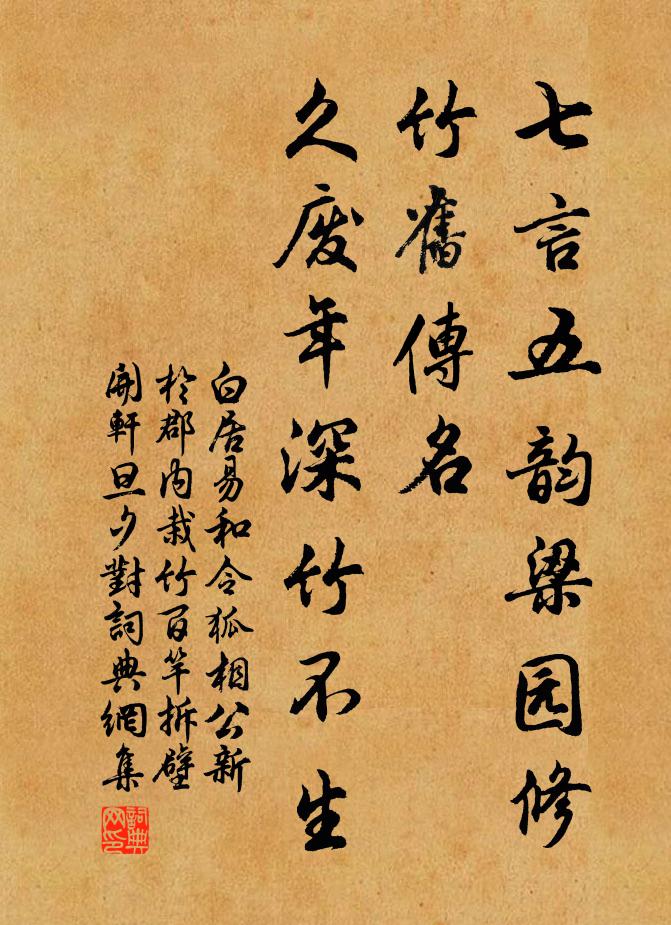 七言五韵梁园修
竹舊傳名
久废年深竹不生
白居易和令狐相公新
於郡内栽竹百竿拆壁
開軒旦夕對詞典網集
詞典网印